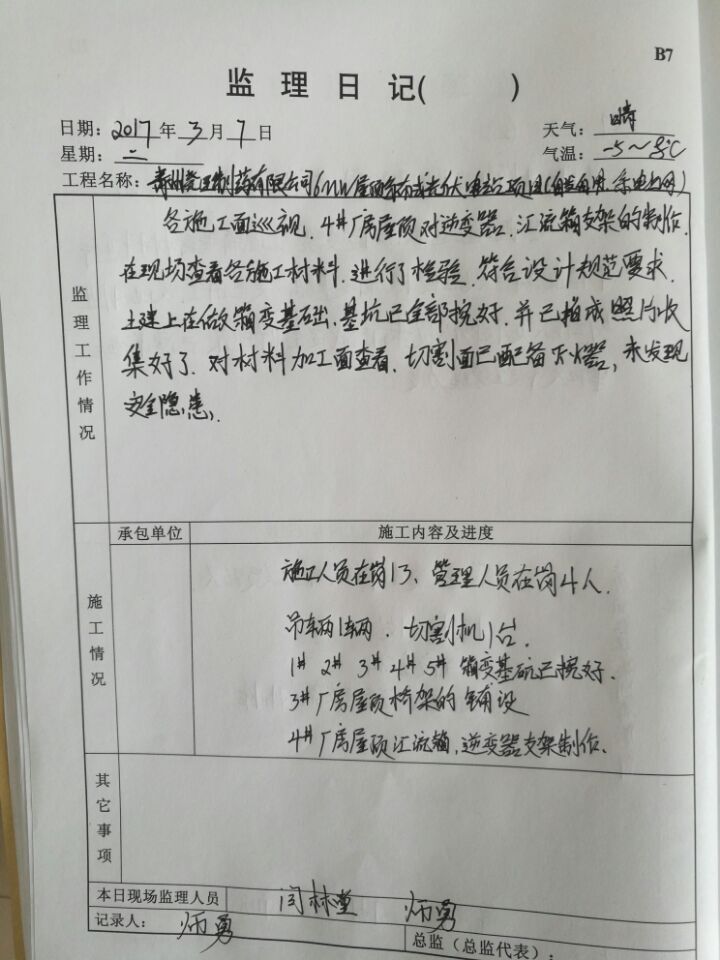 B7
监 理 日 记( )
日期: 2017 年 3 月 7 日 天气: 晴
星期: 二 气温: -5~8℃
工程名称: 青州尧王制药有限公司6MW屋顶分布式光伏电站项目(自发自用、余电上网)
监理工作情况
各施工面巡视. 4#厂房屋顶对逆变器.汇流箱支架的制作.
在现场查看各施工材料.进行了检验.符合设计规范要求.
土建上在做箱变基础、基坑已全部挖好.并已拍成照片收
集好了.对材料加工面查看.切割面已配备灭火器,未发现
安全隐患.
施工情况
承包单位 施工内容及进度
施工人员在岗13、管理人员在岗4人.
吊车辆1辆. 切割机1台.
1# 2# 3# 4# 5# 箱变基坑已挖好.
3#厂房屋顶桥架的铺设
4#厂房屋顶汇流箱,逆变器支架制作.
其它事项
本日现场监理人员 闫林堂 师勇
记录人: 师勇 总监(总监代表):